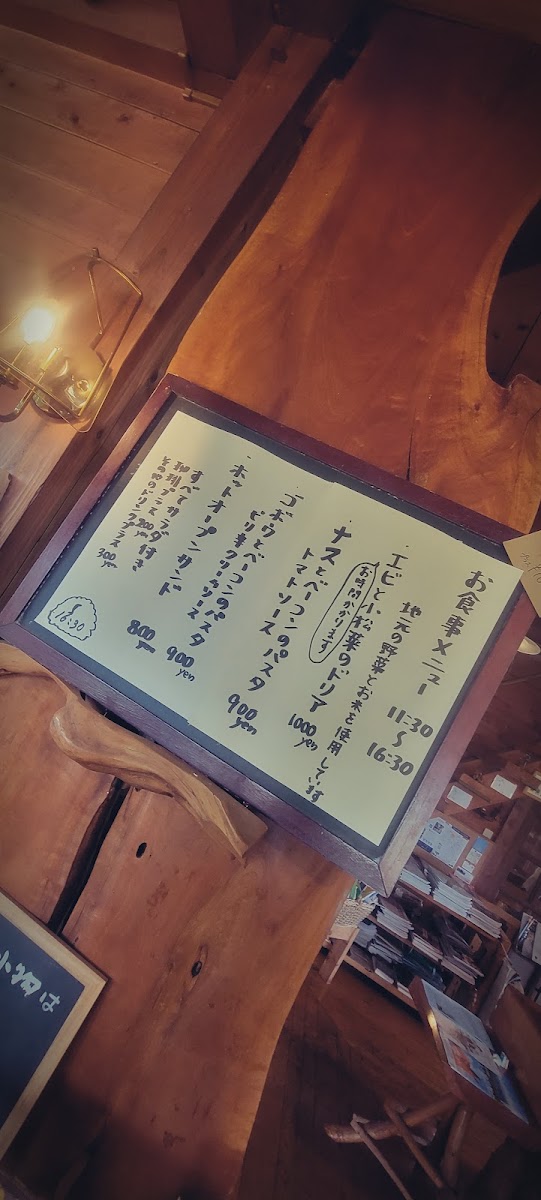 お食事メニュー 11:30〜16:30
地元の野菜とお米を使用しています
・エビと小松菜のドリア 1000yen
お時間かかります
・ナスとベーコンの
トマトソースパスタ 900yen
・ゴボウとベーコンの
ピリ辛クリームソースパスタ 900yen
・ホットオープンサンド 800yen
すべてサラダ付き
珈琲プラス200yen
その他のドリンクプラス300yen
16:30
は